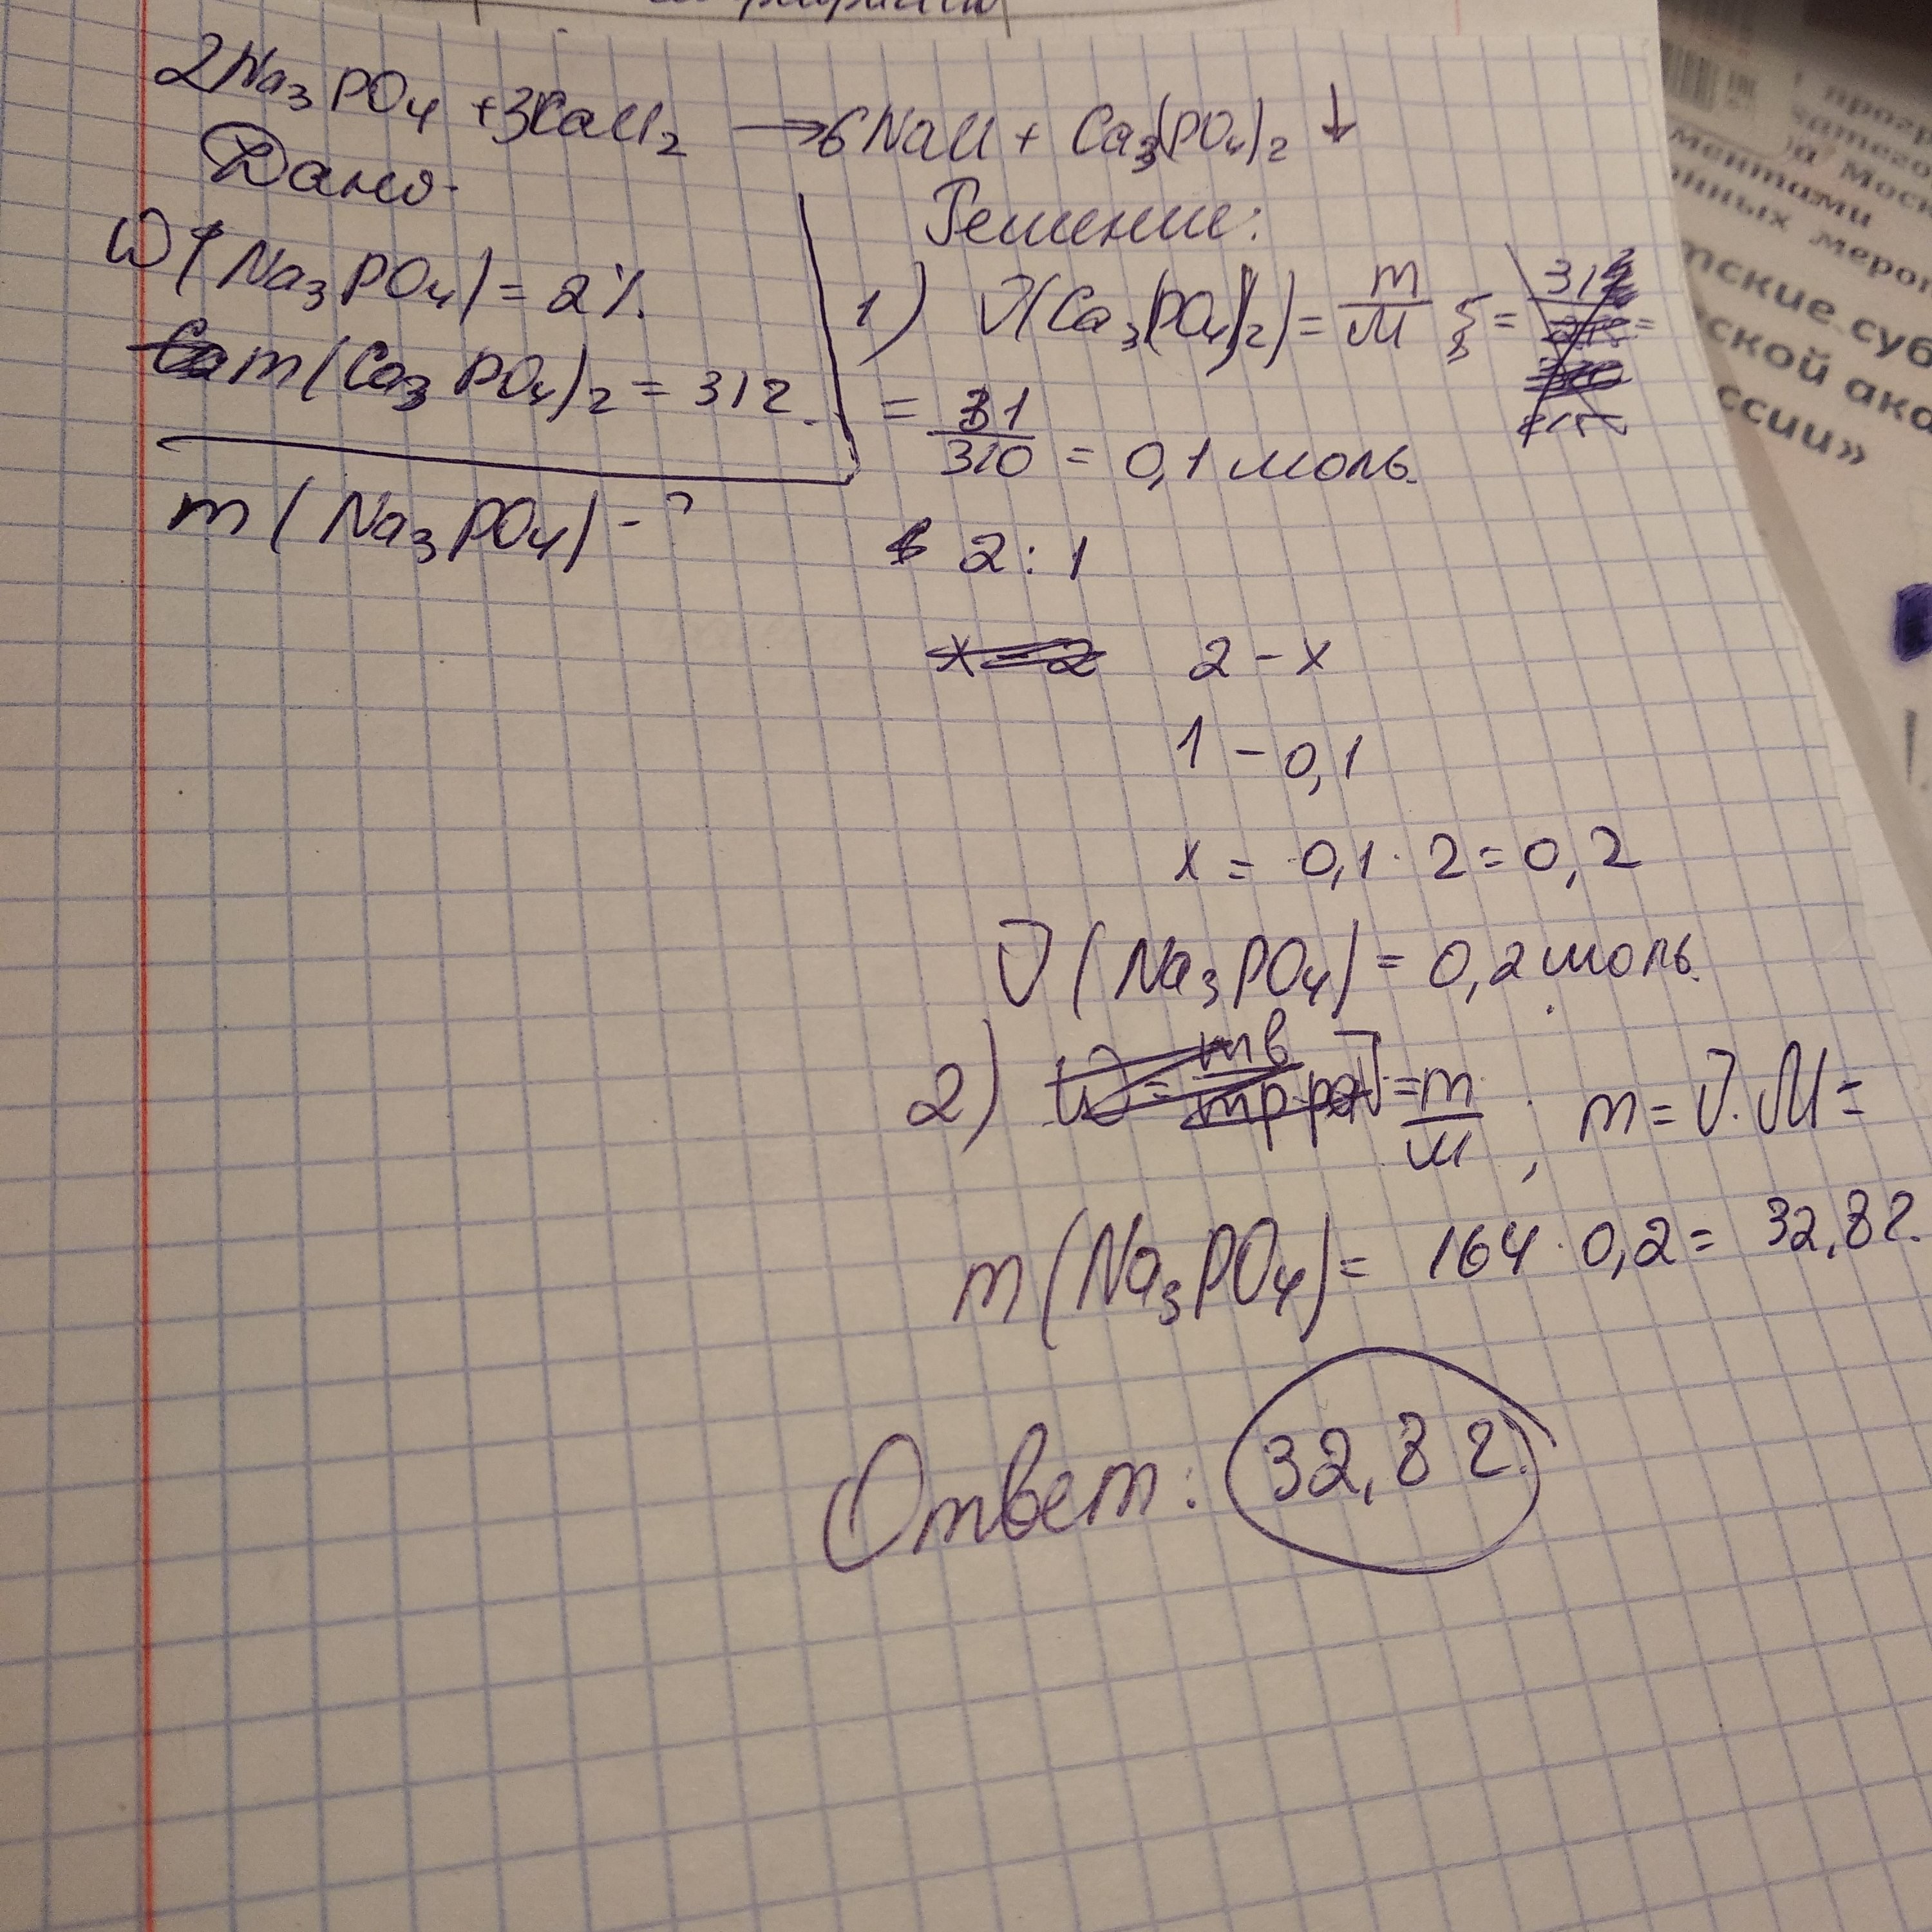 2Na₃PO₄ + 3CaCl₂ → 6NaCl + Ca₃(PO₄)₂ ↓
Дано.
W (Na₃PO₄) = 2%.
m (Ca₃PO₄)₂ = 31г.
m (Na₃PO₄) - ?
Решение:
1) ν(Ca₃(PO₄)₂) = m/M =
= 31/310 = 0,1 моль.
2 : 1
x - 2 2 - x
1 - 0,1
x = 0,1 · 2 = 0,2
ν (Na₃PO₄) = 0,2 моль.
2) W = mв/mр-ра ν = m/M ; m = ν · M =
m (Na₃PO₄) = 164 · 0,2 = 32,8г.
Ответ: 32,8 г.
прогр
категор
а Моск
ментами
нных мероп
тские суб
ской ака
ссии»